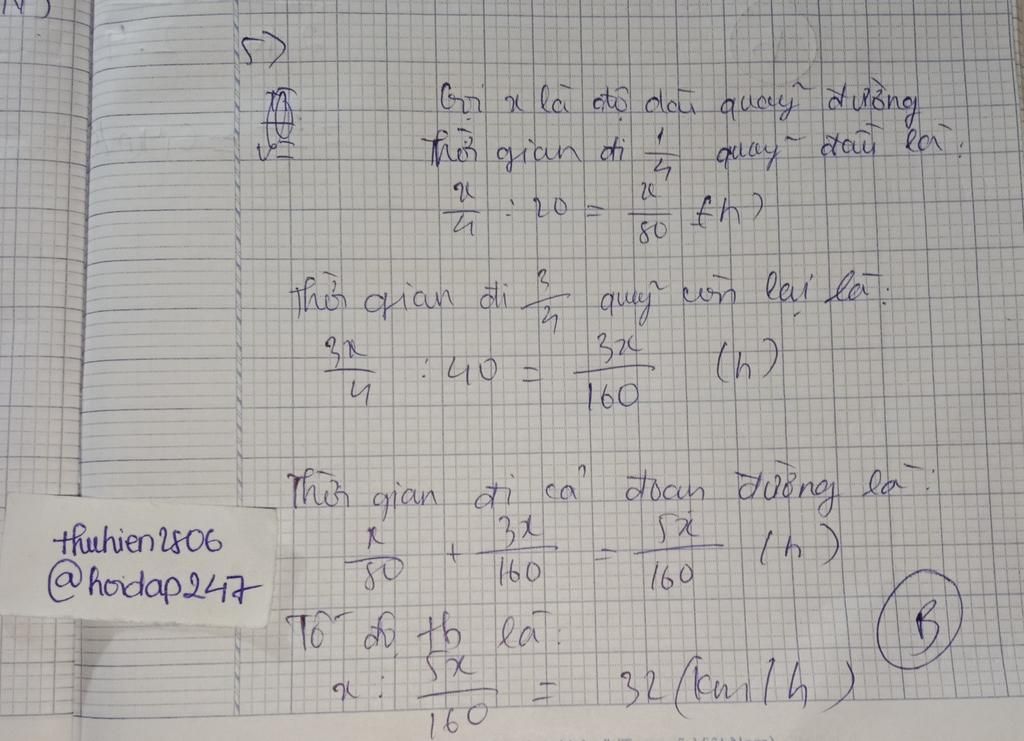 5)
Gọi x là độ dài quãng đường
Thời gian đi 1/4 quãng đầu là:
x/4 : 20 = x/80 (h)
Thời gian đi 3/4 quãng còn lại là:
3x/4 : 40 = 3x/160 (h)
Thời gian đi cả đoạn đường là:
x/80 + 3x/160 = 5x/160 (h)
Tốc độ tb là:
x : 5x/160 = 32 (km/h)
B
thuhien2806
@hoidap247